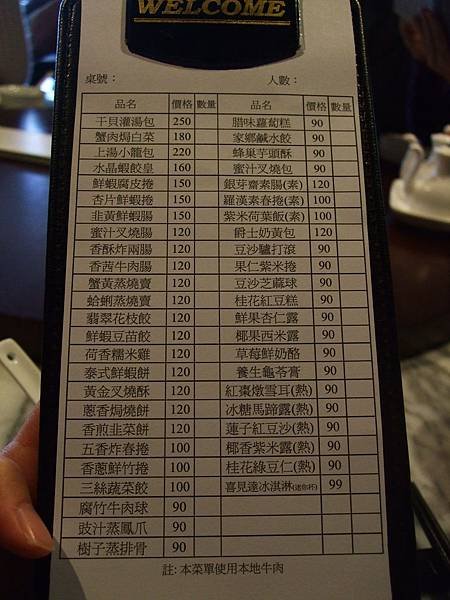 WELCOME
桌號： 人數：
品名 價格 數量 品名 價格 數量
干貝灌湯包 250 腊味蘿蔔糕 90
蟹肉焗白菜 180 家鄉鹹水餃 90
上湯小籠包 220 蜂巢芋頭酥 90
水晶蝦餃皇 160 蜜汁叉燒包 90
鮮蝦腐皮捲 150 銀芽齋素腸(素) 120
杏片鮮蝦捲 150 羅漢素春捲(素) 100
韭黃鮮蝦腸 150 紫米荷葉飯(素) 100
蜜汁叉燒腸 120 爵士奶黃包 120
香酥炸兩腸 120 豆沙驢打滾 90
香茜牛肉腸 120 果仁紫米捲 90
蟹黃蒸燒賣 120 豆沙芝蔴球 90
蛤蜊蒸燒賣 120 桂花紅豆糕 90
翡翠花枝餃 120 鮮果杏仁露 90
鮮蝦豆苗餃 120 椰果西米露 90
荷香糯米雞 120 草莓鮮奶酪 90
泰式鮮蝦餅 120 養生龜苓膏 90
黃金叉燒酥 120 紅棗燉雪耳(熱) 90
蔥香焗燒餅 120 冰糖馬蹄露(熱) 90
香煎韭菜餅 120 蓮子紅豆沙(熱) 90
五香炸春捲 100 椰香紫米露(熱) 90
香蔥鮮竹捲 100 桂花綠豆仁(熱) 90
三絲蔬菜餃 100 喜見達冰淇淋(迷你杯) 99
腐竹牛肉球 90
豉汁蒸鳳爪 90
樹子蒸排骨 90
註: 本菜單使用本地牛肉